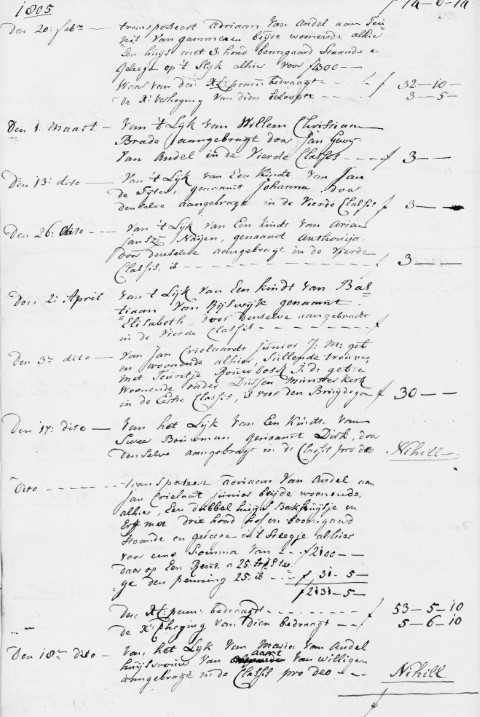 1805
Den 20: febr — transporteert adriaan Van Andel aan
Van beijde woonende alhier
Een huijs met 3 hond boomgaard Staande en
Geleege op't alhier voor ƒ1300 — —
Waar van den Xl penn: bedraagt — ƒ 32 — 10 —
de X: Verhoging van dien beloopt — 3 — 5 —
Den 1 Maart — Van 't Lijk van Willem Christiaan
Brade aangebragt door Jan
Van Andel in de Vierde Classis — — — ƒ 3 — —
Den 13: dito — Van 't Lijk van Een kindt van Jan
de genaamt Johanna, door
denselve aangebragt in de Vierde Classis ƒ 3 — —
Den 26: dito — Van 't Lijk van Een kindt van Arian
Jansz: genaamt Anthonija
door denselve aangebragt in de Vierde
Classis, is — — — — — 3 — —
Den 2: April Van 't Lijk van Een kindt van Bas-
tiaan Van Rijswijk genaamt
Elisabeth, door denselve aangebracht
in de Vierde Classis — — — — ƒ
Den 3: dito — Van Jan Crielaard junior J: M: geb:
en woonende alhier, Sullende trouwen
met J: D: geb: en
Woonende onder Dussen Munsterkerk
in de Eerste Classis, is voor den Bruijdegom ƒ 30 — —
Den 17: dito — Van het Lijk van Een Kindt van
genaamt Dirk, door
denselve aangebragt in de Classis pro deo Nihill
Dito — transporteert adriaan Van Andel aan
Jan Crielaart junior beijde woonende
alhier, Een dubbel huijs Bakhuijsje en
Erf met drie hond hof en boomgaard
Staande en geleegen in 't Steegje alhier
voor eene Somma van — ƒ2100 — —
daar op Een a 25:
ge den penning 25: is — — ƒ 31 — 5 —
ƒ2131 — 5 —
den Xl: penn: bedraagt — — ƒ 53 — 5 — 10
de X: Verhoging van dien bedraagt — 5 — 6 — 10
Den 18: dito — Van het Lijk van Maria Van Andel
huijsvrouw van Aart Van Willigen
aangebragt in de Classis pro deo — Nihill
ƒ